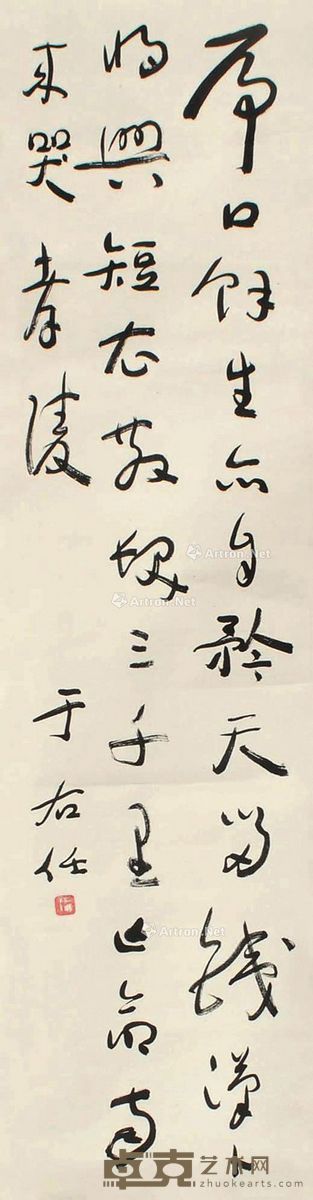 虎口餘生亦自矜天留鐵漢卜
將興短衣散髮三千里亡命南
來哭孝陵
于右任
Artron.Net
Artron.Net
Artron.Net
卓克艺术网
www.zhuokearts.com